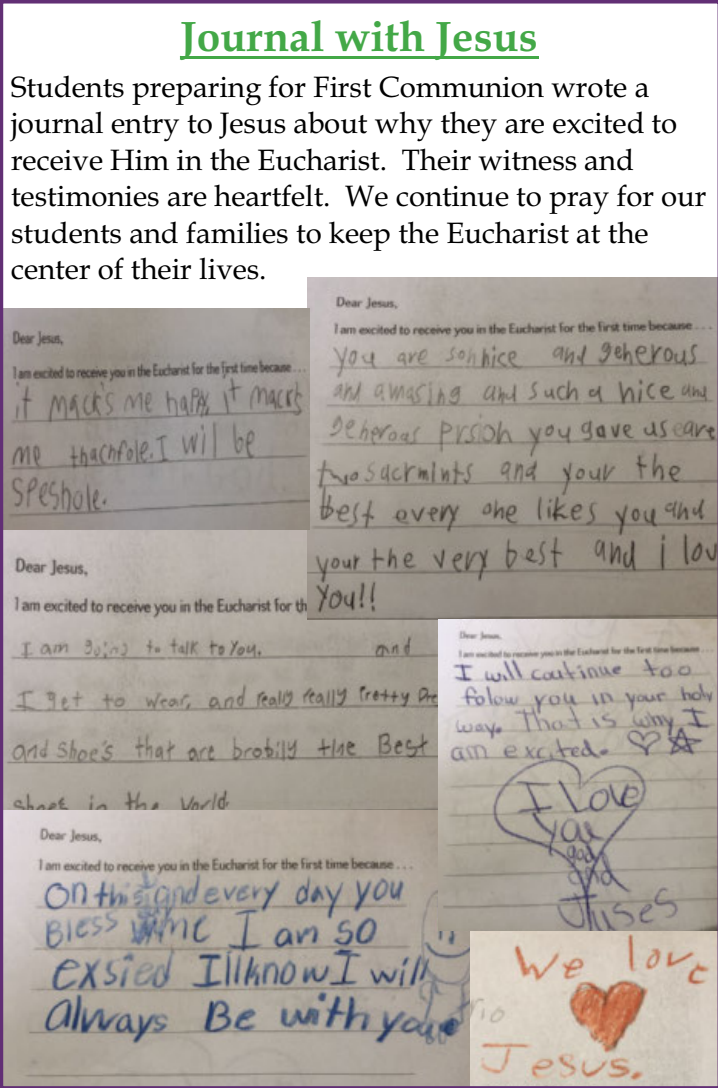 Journal with Jesus
Students preparing for First Communion wrote a
journal entry to Jesus about why they are excited to
receive Him in the Eucharist. Their witness and
testimonies are heartfelt. We continue to pray for our
students and families to keep the Eucharist at the
center of their lives.
Dear Jesus,
I am excited to receive you in the Eucharist for the first time because . . .
it mack's me happy it macks
me thachfole. I will be
Speshole.
Dear Jesus,
I am excited to receive you in the Eucharist for the first time because . . .
you are and generous
and amasing and such a nice and
generous prsion you gave us
two sacrmints and your the
best every one likes you and
your the very best and i lov
You!!
Dear Jesus,
I am excited to receive you in the Eucharist for th
I am going to talk to You. and
I get to wear, and really really Pretty Dre
and Shoe's that are brobily the Best
in the World
Dear Jesus,
I am excited to receive you in the Eucharist for the first time because . . .
I will coutinue too
folow you in your holy
way. That is why I
am excited.
I Love
you
god
and
Juses
Dear Jesus,
I am excited to receive you in the Eucharist for the first time because . . .
On this and every day you
Bless me I an so
exsied I know I will
always Be with you
We love
Jesus.